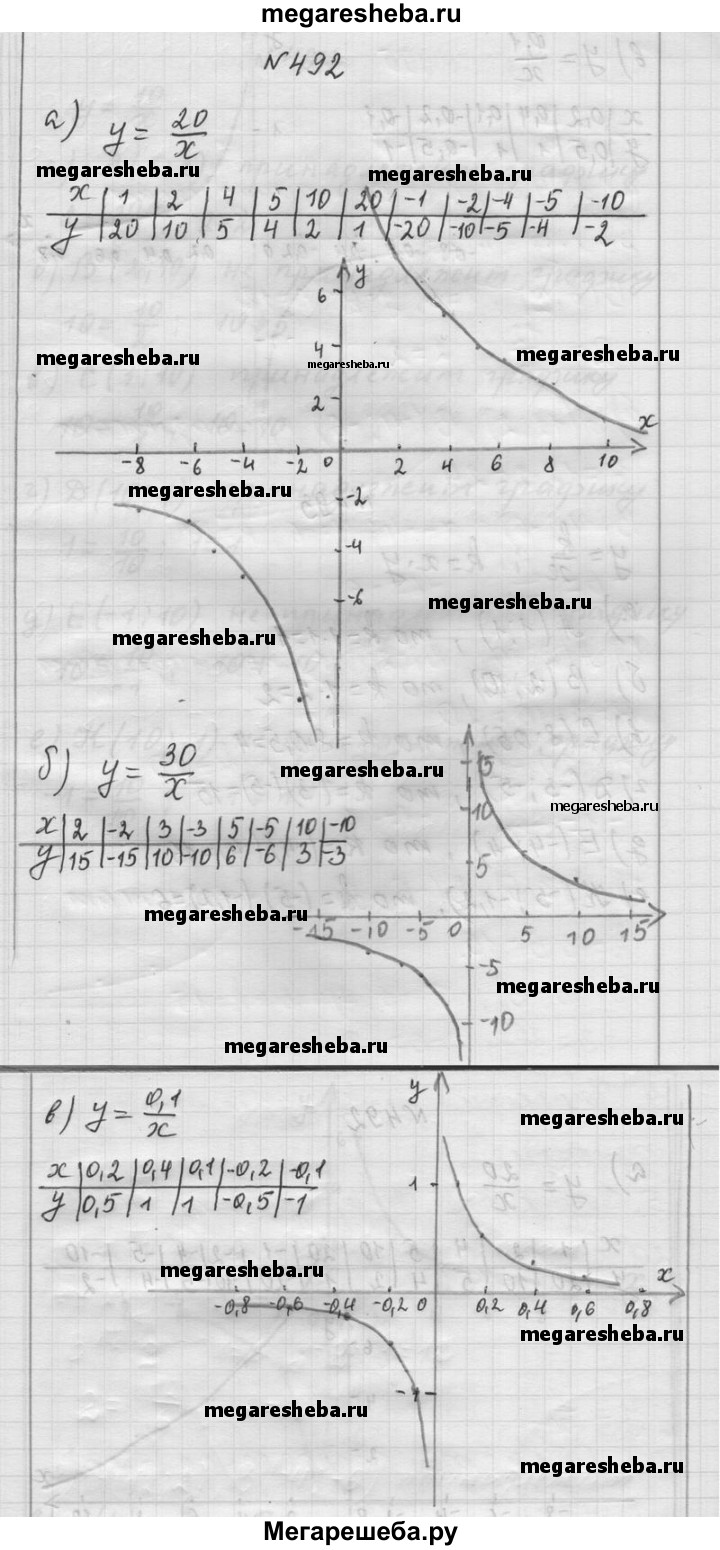 megaresheba.ru
N492
а) y = 20/x
megaresheba.ru megaresheba.ru
x | 1 | 2 | 4 | 5 | 10 | 20 | -1 | -2 | -4 | -5 | -10
y | 20 | 10 | 5 | 4 | 2 | 1 | -20 | -10 | -5 | -4 | -2
y
6
megaresheba.ru 4 megaresheba.ru megaresheba.ru
2 x
-8 -6 -4 -2 0 2 4 6 8 10
megaresheba.ru -2
-4
-6 megaresheba.ru
megaresheba.ru
б) y = 30/x megaresheba.ru 15
10 megaresheba.ru
x | 2 | -2 | 3 | -3 | 5 | -5 | 10 | -10
y | 15 | -15 | 10 | -10 | 6 | -6 | 3 | -3
5
megaresheba.ru
-15 -10 -5 0 5 10 15
-5
megaresheba.ru
-10
megaresheba.ru
y
в) y = 0,1/x megaresheba.ru
x | 0,2 | 0,4 | 0,1 | -0,2 | -0,1
y | 0,5 | 1 | 1 | -0,5 | -1
1
megaresheba.ru x
-0,8 -0,6 -0,4 -0,2 0 0,2 0,4 0,6 0,8
megaresheba.ru
-1
megaresheba.ru
megaresheba.ru
Мегарешеба.ру